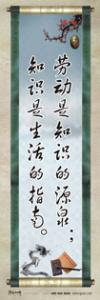 劳动是知识的源泉；
知识是生活的指南。